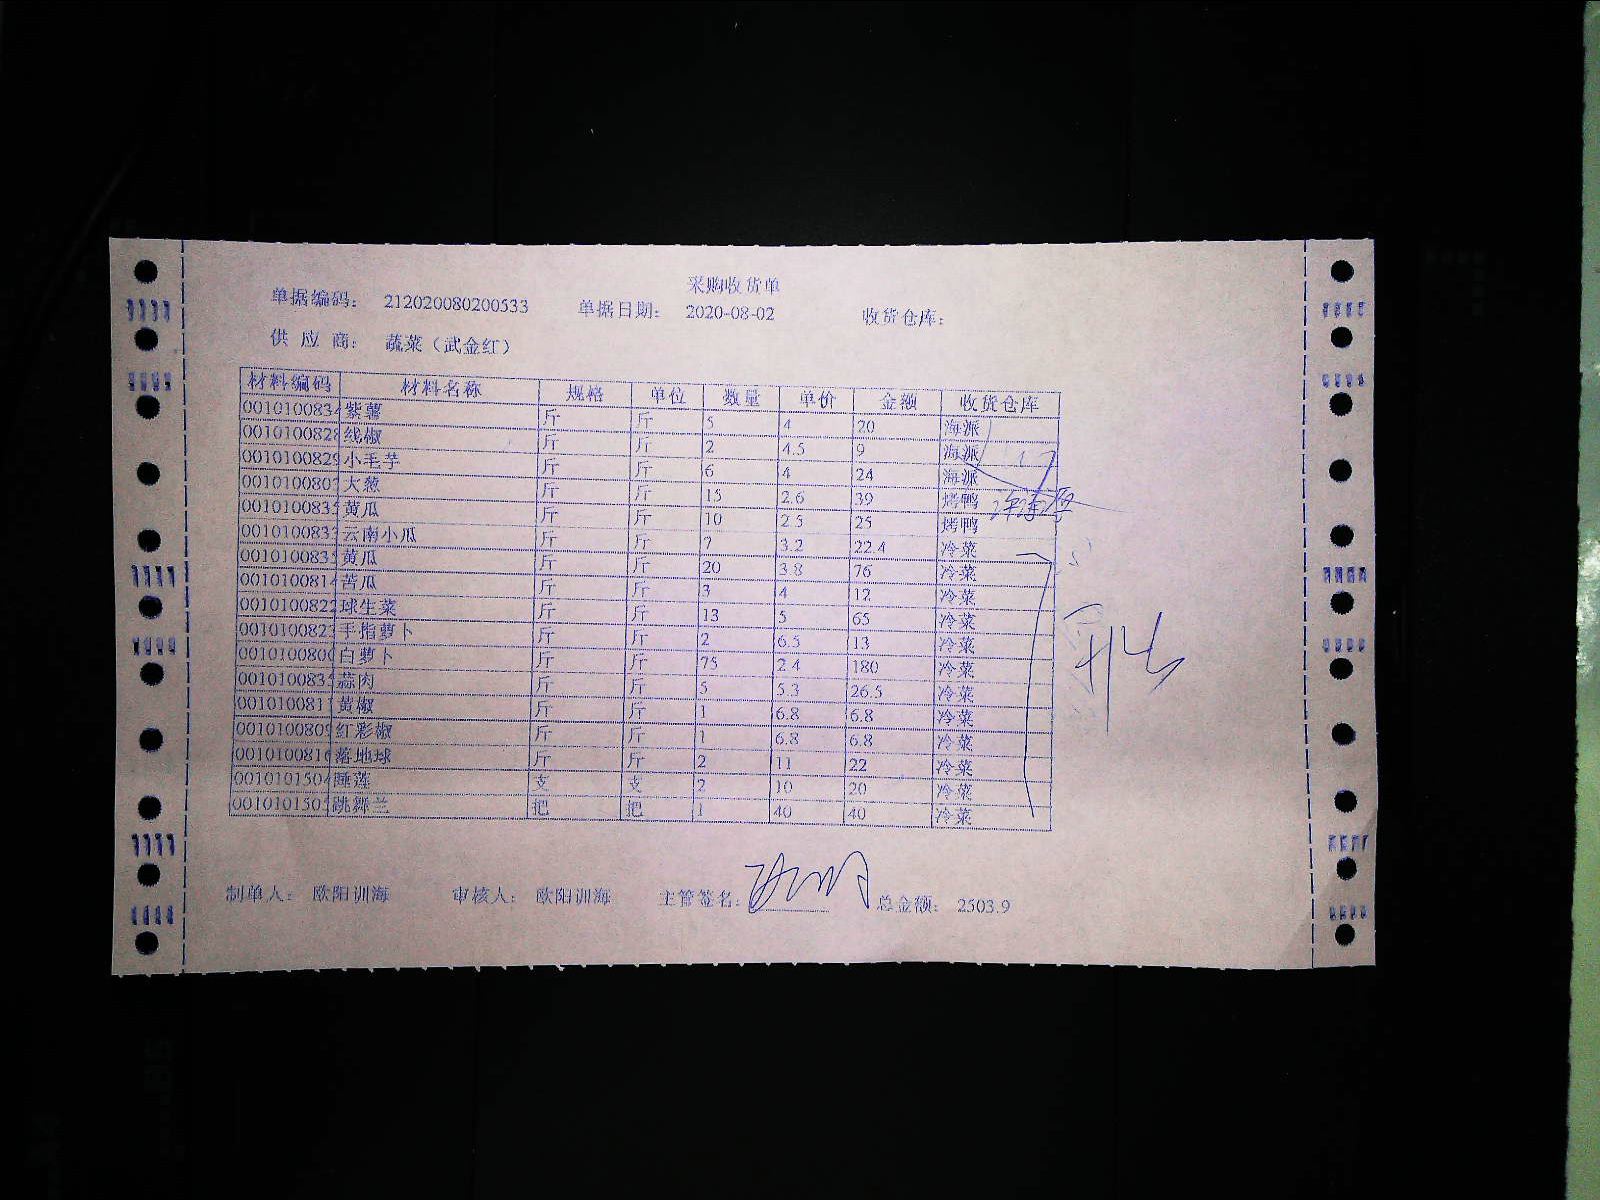 采购收货单
单据编码: 212020080200533 单据日期: 2020-08-02 收货仓库:
供应商: 蔬菜（武金红）
材料编码 材料名称 规格 单位 数量 单价 金额 收货仓库
0010100834 紫薯 斤 斤 5 4 20 海派
0010100828 线椒 斤 斤 2 4.5 9 海派
0010100829 小毛芋 斤 斤 6 4 24 海派
001010080 大葱 斤 斤 15 2.6 39 烤鸭
001010083 黄瓜 斤 斤 10 2.5 25 烤鸭
001010083 云南小瓜 斤 斤 7 3.2 22.4 冷菜
001010083 黄瓜 斤 斤 20 3.8 76 冷菜
001010081 苦瓜 斤 斤 3 4 12 冷菜
0010100822 球生菜 斤 斤 13 5 65 冷菜
001010082 手指萝卜 斤 斤 2 6.5 13 冷菜
001010080 白萝卜 斤 斤 75 2.4 180 冷菜
001010083 蒜肉 斤 斤 5 5.3 26.5 冷菜
001010081 黄椒 斤 斤 1 6.8 6.8 冷菜
001010080 红彩椒 斤 斤 1 6.8 6.8 冷菜
0010100816 落地球 斤 斤 2 11 22 冷菜
001010150 睡莲 支 支 2 10 20 冷菜
001010150 跳舞兰 把 把 1 40 40 冷菜
制单人: 欧阳训海 审核人: 欧阳训海 主管签名: 总金额: 2503.9